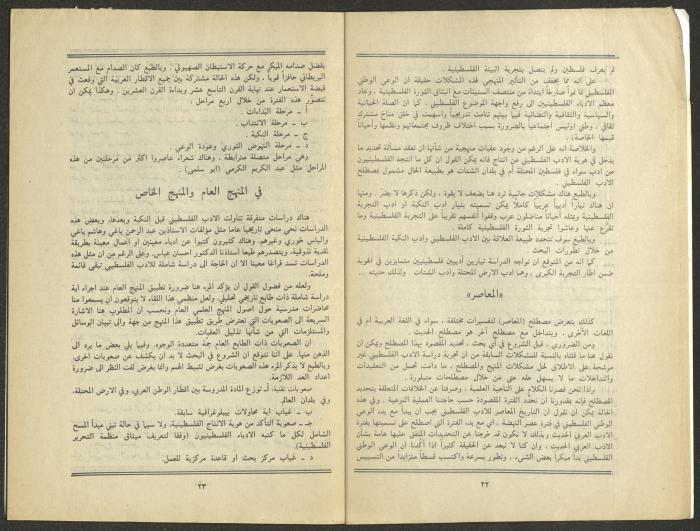 لم يعرف فلسطين ولم يتصل بتجربة البيئة الفلسطينية .
على أنه مما يخفف من التأثير المنهجي لهذه المشكلات حقيقة ان الوعي الوطني
الفلسطيني نما نمواً صارخاً ابتداءً من منتصف الستينات مع انبثاق الثورة الفلسطينية ، وعاد
معظم الأدباء الفلسطينيين الى رفع واجهة الموضوع الفلسطيني ، كما ان الصلة الحياتية
والسياسية والثقافية والنضالية فيما بينهم تنامت تدريجياً واسهمت في خلق مناخ مشترك
ثقافي ، وطني اوليس اجتماعياً بالضرورة بسبب اختلاف ظروف مجتمعاتهم ونظمها وأحياناً
قيمها الخاصة) .
والخلاصة انه على الرغم من وجود عقبات منهجية من شأنها ان تعقد مسألة تحديد ما
يدخل في هوية الادب الفلسطيني من انتاج فانه يمكن القول ان كل ما انتجه الفلسطينيون
من ادب سواء في فلسطين المحتلة أم في بلدان الشتات هو بطبيعة الحال مشمول بمصطلح
الادب الفلسطيني .
وبالطبع هناك مشكلات جانبية ترد هنا بضعف لا بقوة ، ولكن ذكرها لا يضر . ومنها
ان هناك تياراً أدبياً عربياً كاملاً يمكن تسميته بتيار ادب النكبة او ادب التجربة
الفلسطينية ويمثله أحياناً مناضلون عرب وقفوا أنفسهم تقريباً على التجربة الفلسطينية وما
تفرّع عنها وعاشوا تجربة الثورة الفلسطينية كاملة .
وبالطبع سوف تتحدد طبيعة العلاقة بين الادب الفلسطيني وادب النكبة الفلسطينية
من خلال تطورات البحث .
كما انه من المتوقع ان تواجه الدراسة تيارين أدبيين فلسطينيين متمايزين في الهوية
ضمن اطار التجربة الكبرى ، وهما ادب الارض المحتلة وادب الشتات . ولذلك حديثه ...
«المعاصر»
كذلك يتعرض مصطلح (المعاصر) لتفسيرات مختلفة ، سواء في اللغة العربية ام في
اللغات الأخرى ، ويتداخل مع مصطلح آخر هو مصطلح الحديث .
ومن الضروري ، قبل الشروع في أي بحث ، تحديد المقصود بهذا المصطلح ويمكن ان
نقول هنا ما قلناه بالنسبة للمشكلات السابقة من ان تجربة دراسة الادب الفلسطيني غير
مرشحة على الاطلاق لحل مشكلات المنهج والمصطلح ، ما دامت تحمل من التعقيدات
والتداخلات ما لا يسهل حله حتى من خلال مصطلحات متبلورة .
واذا نحن قصرنا الكلام على الناحية العملية ، وصرفنا عن الخلافات المتعلقة بتحديد
المصطلح فانه بمقدورنا ان نحدد الفترة المقصودة حسب حاجتنا العملية التوعية . وفي هذه
الحالة يمكن ان نقول ان التأريخ المعاصر للادب الفلسطيني يجب ان يبدأ مع بدء الوعي
الوطني الفلسطيني في فترة عصر النهضة ، اي مع بدء الفترة التي اصطلح على تسميتها بفترة
الأدب العربي الحديث وبذلك لا نكون قد خرجنا عن التحديدات المتفق عليها عامة بشأن
الأدب العربي الحديث . وان كنا لا نبعد عن الحقيقة كثيراً اذا أكدنا ان الوعي الوطني
الفلسطيني بدأ مبكراً بعض الشيء ، وتطور بسرعة واكتسب قسطاً متزايداً من التسييس
٢٢
بفضل صدامه المبكر مع حركة الاستيطان الصهيوني . وبالطبع كان الصدام مع المستعمر
البريطاني حافزاً قوياً ، ولكن هذه الحالة مشتركة بين جميع الاقطار العربية التي وقعت في
قبضة الاستعمار عند نهاية القرن التاسع عشر وبداءة القرن العشرين . وهكذا يمكن ان
نتصوّر هذه الفترة من خلال اربع مراحل :
أ ـ مرحلة البداءات .
ب ـ مرحلة الانتداب .
ج ـ مرحلة النكبة .
د ـ مرحلة النهوض الثوري وعودة الوعي .
وهي مراحل متصلة مترابطة ، وهناك شعراء عاصروا اكثر من مرحلتين من هذه
المراحل مثل عبد الكريم الكرمي (أبو سلمى) .
في المنهج العام والمنهج الخاص
هناك دراسات متفرقة تناولت الادب الفلسطيني قبل النكبة وبعدها، وبعض هذه
الدراسات نحي منحى تاريخياً عاما مثل مؤلفات الاستاذين عبد الرحمن ياغي وهاشم ياغي
والياس خوري وغيرهم. وهناك كثيرون كتبوا عن ادباء معينين أو أعمال معينة بطريقة
نقدية تذوقية، ويتصدرهم طبعاً أستاذنا الدكتور احسان عباس. وعلى الرغم من ان مثل هذه
الدراسات تسد فراغا معينا الا ان الحاجة الى دراسة شاملة للادب الفلسطيني تبقى قائمة
وملحة.
ولعله من فضول القول ان يؤكد المرء هنا ضرورة تطبيق المنهج العام عند اجراء اية
دراسة شاملة ذات طابع تاريخي تحليلي. ولعل منظمي هذا اللقاء لا يتوقعون ان يسمعوا منا
محاضرات مدرسية حول أصول المنهج العلمي العام ونحسب ان المطلوب هنا الاشارة
السريعة الى الصعوبات التي تعترض طريق تطبيق هذا المنهج من جهة والى تبيان الوسائل
والمستلزمات التي من شأنها تذليل العقبات.
ان الصعوبات ذات الطابع العام جمّة متعددة الوجوه. وفيما يلي بعض ما يرد الى
الذهن منها. على أننا نتوقع ان الشروع في البحث لا بد ان يكشف عن صعوبات أخرى.
وبالطبع لا يذكر المرء هذه الصعوبات بغرض تثبيط الهمم وانما بغرض لفت النظر الى ضرورة
اعداد العدد اللازمة.
صعوبات تقنية: أـ توزع المادة المدروسة بين اقطار الوطن العربي، وفي الارض المحتلة،
وفي بلدان العالم.
ب ـ غياب اية محاولات ببيلوغرافية سابقة.
جـ ـ صعوبة التأكد من هوية الانتاج الفلسطينية، ولا سيما في حالة تبني مبدأ المسح
الشامل لكل ما كتبه الادباء الفلسطينيون (وفقا لتعريف ميثاق منظمة التحرير
الفلسطينية).
د ـ غياب مركز بحث او قاعدة مركزية للعمل.
٢٣